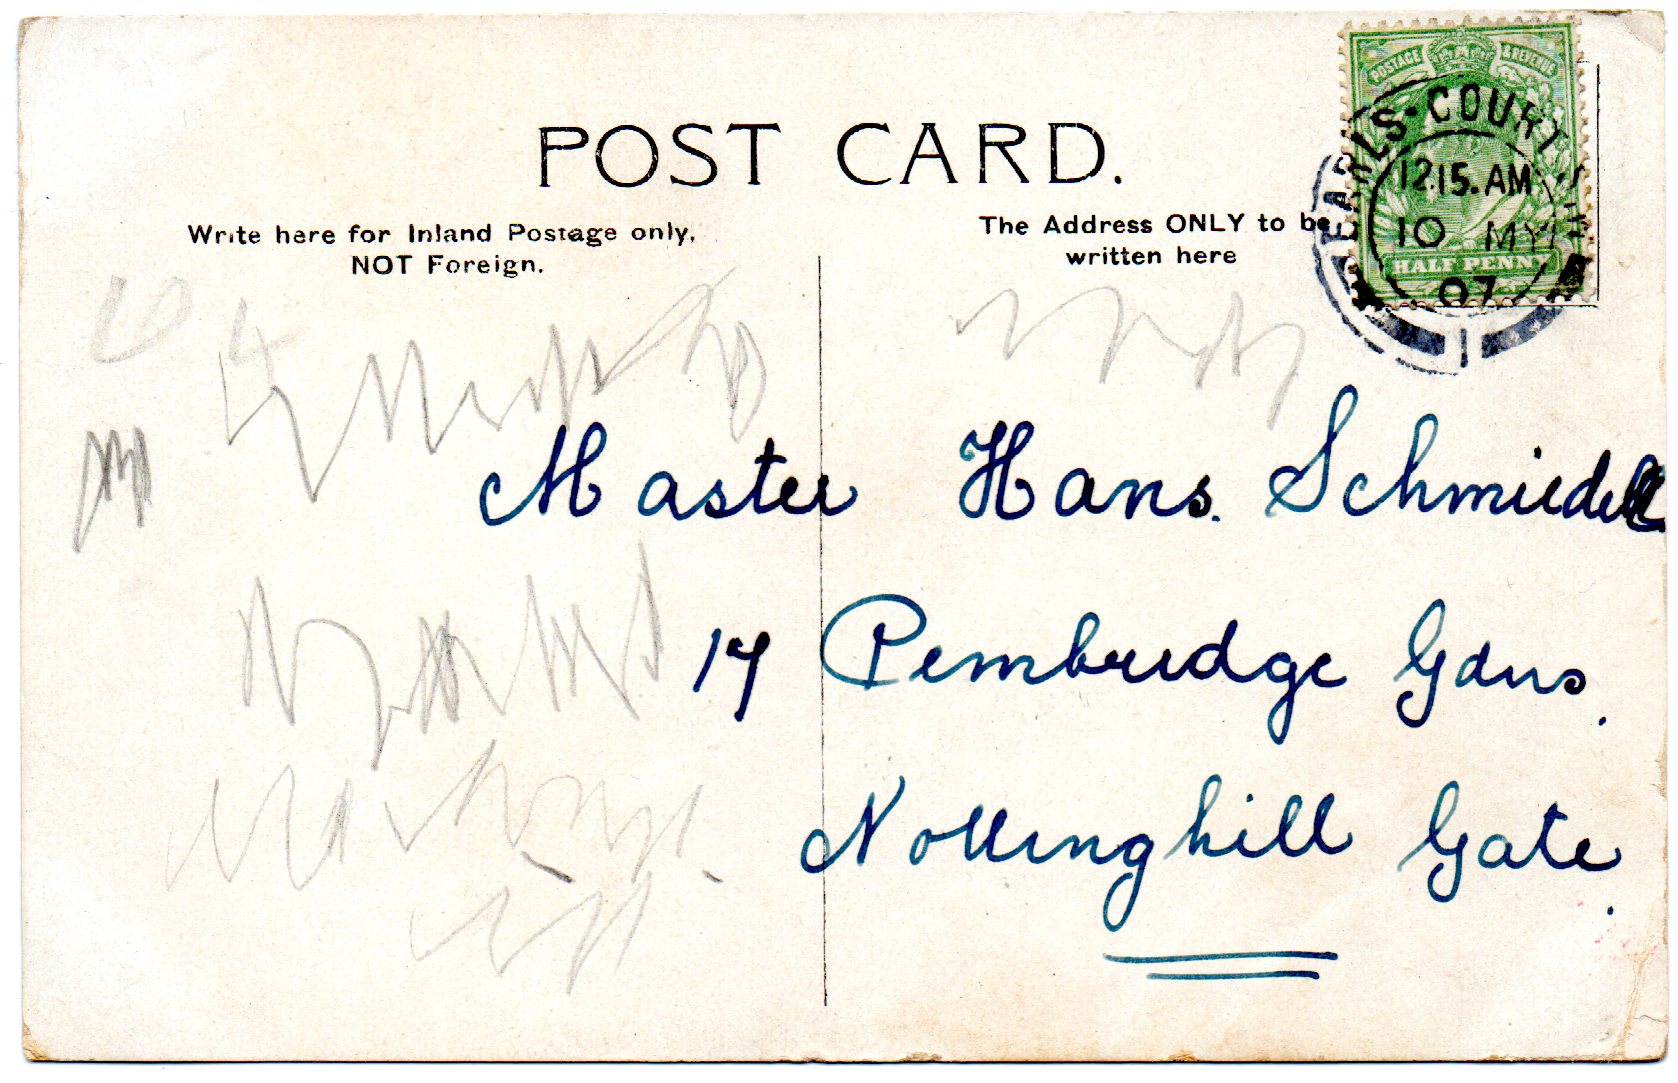 POST CARD.
Write here for Inland Postage only,
NOT Foreign.
The Address ONLY to be
written here
POSTAGE & REVENUE
EARLS-COURT
12.15.AM
10 MY
07
HALF PENNY
1
Master Hans. Schmiedell
17 Pembridge Gdns.
Nottinghill Gate.